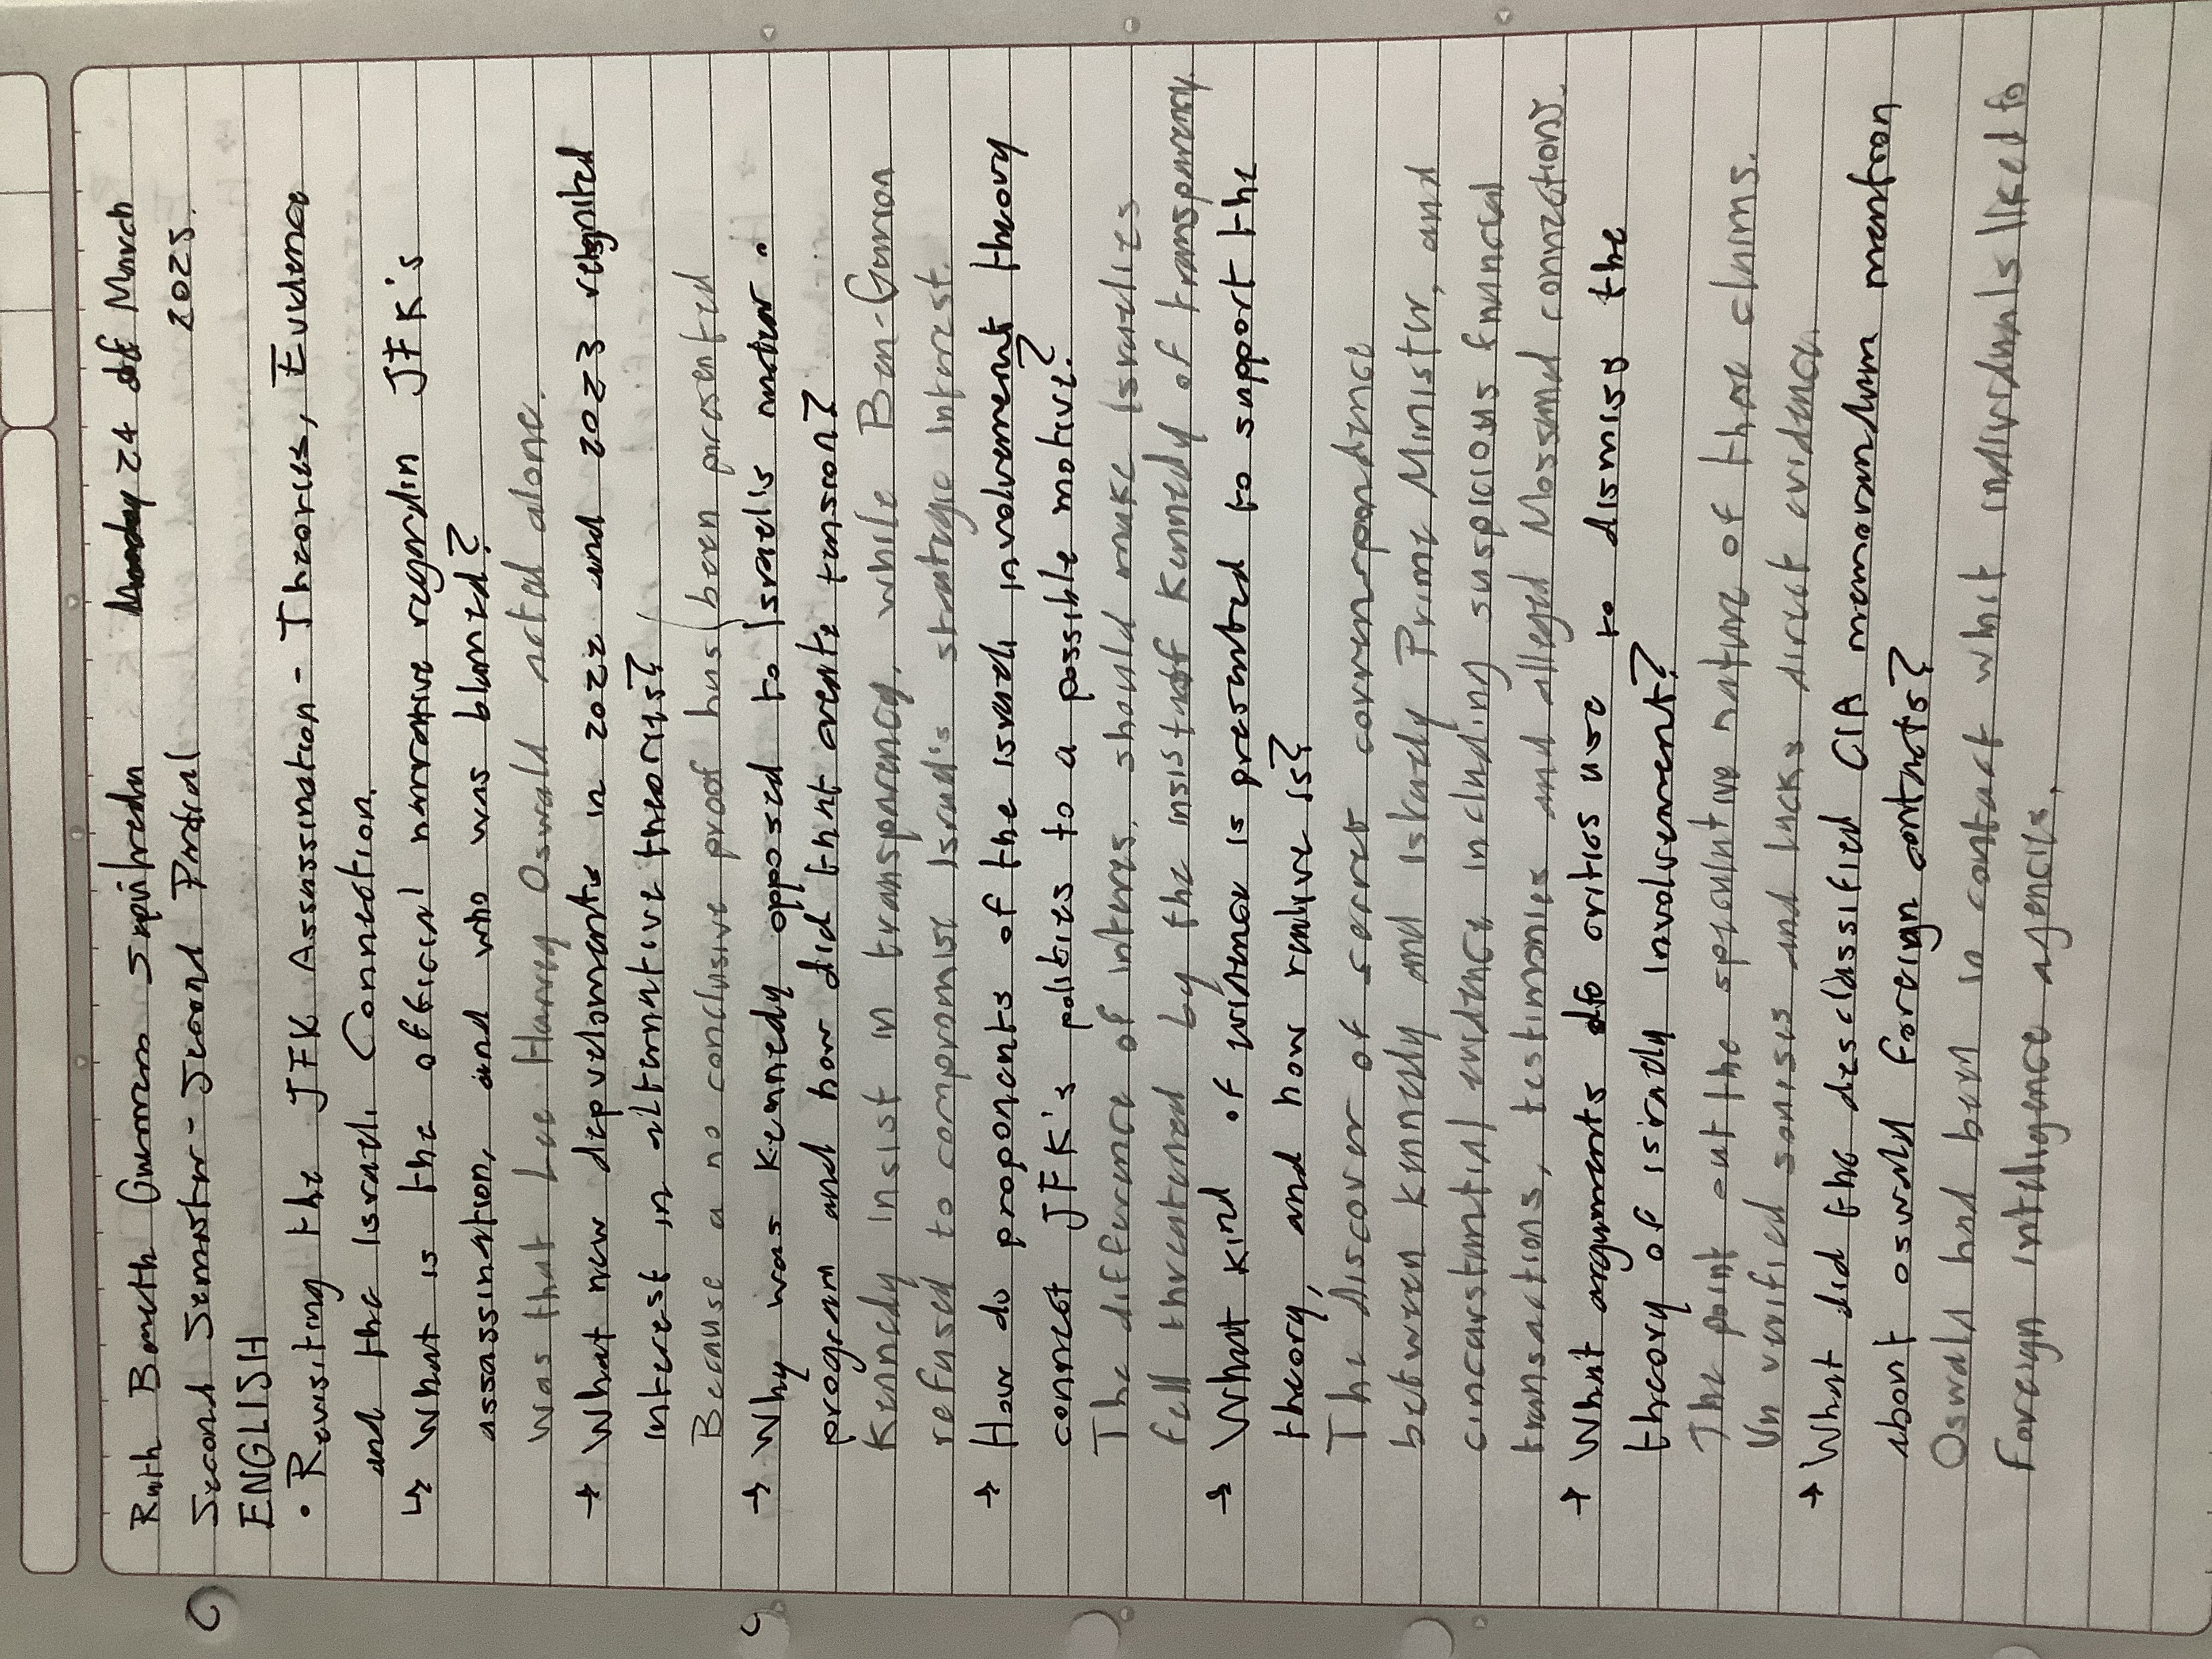 Ruth Baneth Guzman Sapihredn Monday 24 of March
Second Semester - Second Partial 2025.
ENGLISH
• Revisiting the JFK Assassination - Theories, Evidence
and the Israeli Connection.
↳ What is the official narrative regardin JFK's
assassination, and who was blamed?
Was that Lee Harvey Oswald acted alone.
→ What new depveloments in 2022 and 2023 reignited
interest in alternative theories?
Because a no conclusive proof has been presented
→ Why was Kennedy opposed to Israel's nuclear.
program and how did that create tension?
Kennedy insist in transparency, while Ben-Gurion
refused to compromise Israel's strategic interest.
→ How do proponents of the israeli involvement theory
connect JFK's politics to a possible motive?
The difference of interes, should make Israelies
fell threatened by the insist of Kennedy of transparency.
→ What kind of evidence is presented to support the
theory, and how realive is?
The discover of secret correnspondence
between Kennedy and iskaely Prime Minister, and
cincunstantial evidence including suspicious financial
transactions, testimonies and alleged Mossad connections.
→ What arguments do critics use to dismiss the
theory of israely involvement?
The point out the speculative nature of these claims.
Un verified sources and lacks direct evidence.
→ What did the desclassified CIA memorandum mention
about oswald foreign contacts?
Oswald had been in contact whit individuals liked to
foreign intelligence agencies.